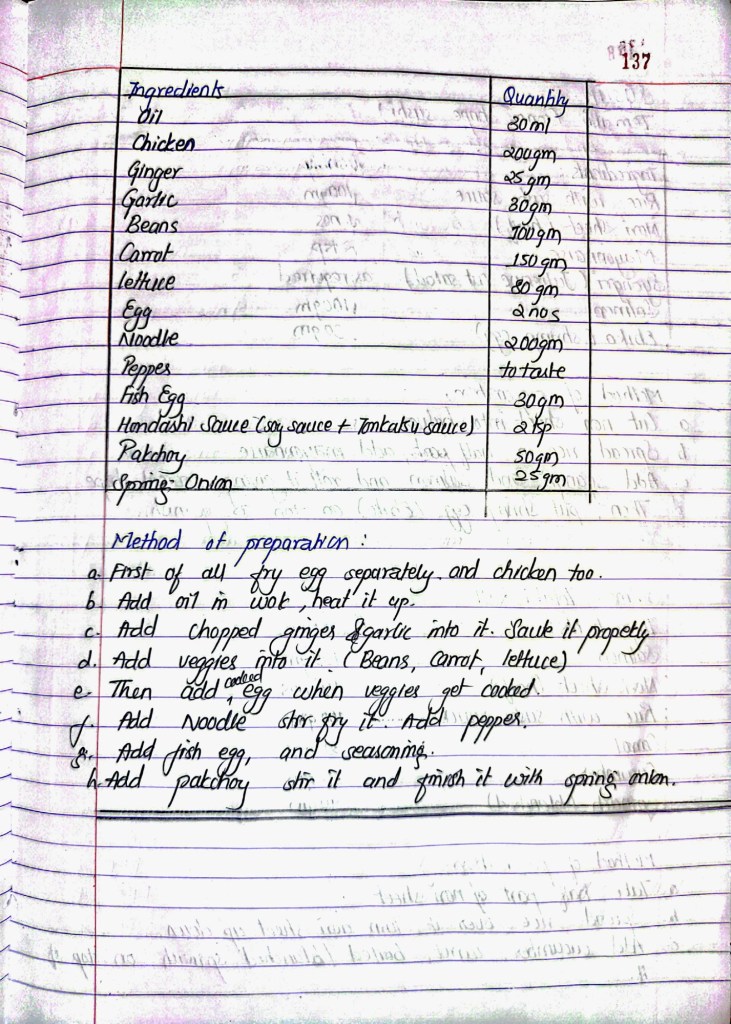 137
Ingredients Quantity
Oil 30ml
Chicken 200gm
Ginger 25 gm
Garlic 30gm
Beans 100gm
Carrot 150 gm
lettuce 80 gm
Egg 2 nos
Noodle 200gm
Pepper to taste
Fish Egg 30gm
Hondashi Sauce (soy sauce + Tonkatsu sauce) 2 tsp
Pakchoy 50gm
Spring Onion 25gm
Method of preparation :
a. First of all fry egg separately and chicken too.
b. Add oil in wok, heat it up.
c. Add chopped ginger & garlic into it. Saute it properly
d. Add veggies into it. (Beans, Carrot, lettuce)
e. Then add cooked egg when veggies get cooked.
f. Add Noodle stir fry it. Add pepper.
g. Add fish egg, and seasoning.
h. Add pakchoy stir it and finish it with spring onion.